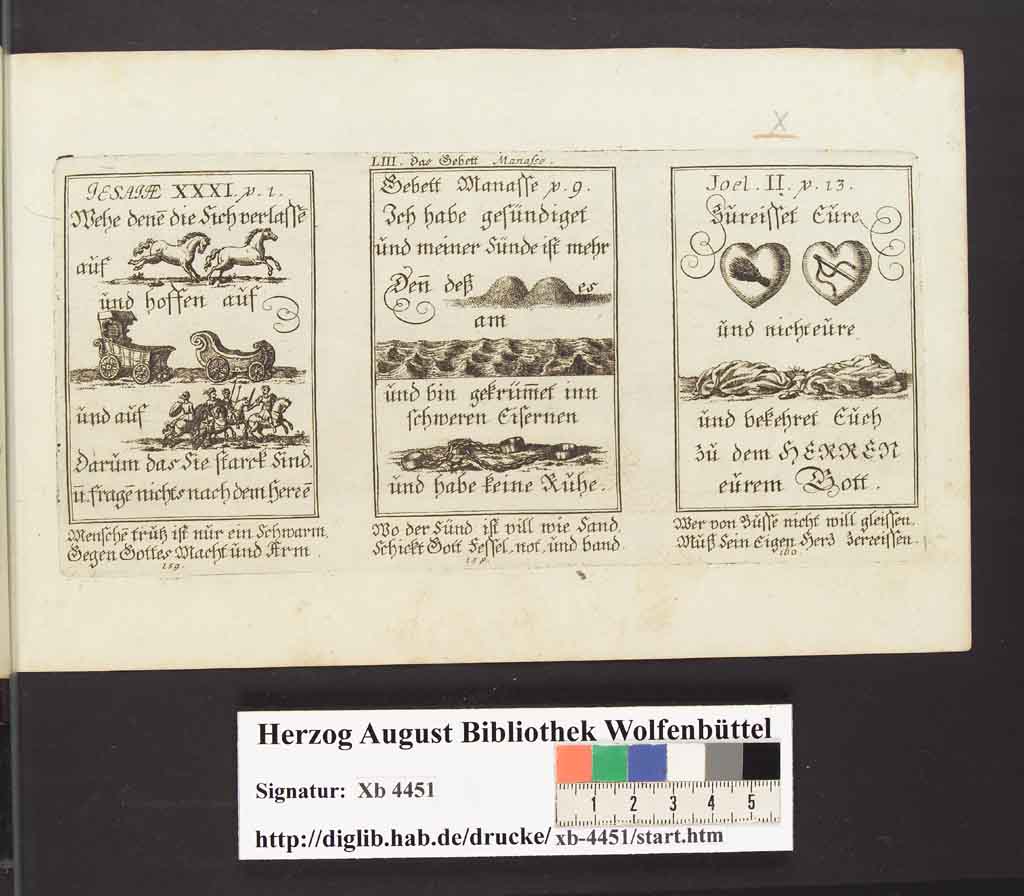 X
LIII. Das Gebett Manasse.
JESAIÆ XXXI. v. 1.
Wehe denē die Sich verlassē
auf
und hoffen auf
und auf
Darum das Sie starck Sind.
ū. fragē nichts nach dem Herrē
Menschē trutz ist nur ein Schwarm,
Gegen Gottes Macht und Arm.
159.
Gebett Manasse v. 9.
Ich habe gesündiget
und meiner Sünde ist mehr
Den̄ deß es
am
und bin gekrüm̄et inn
schweren Eisernen
und habe keine Ruhe.
Wo der Sünd ist vill wie Sand,
Schickt Gott Fessel, not, und band.
Joel. II. v. 13.
Zureisset Eure
und nicht eure
und bekehret Euch
zu dem HERREN
eurem Gott.
Wer von Busse nicht will gleissen,
Muß Sein Eigen Herz zerreissen.
160.
Herzog August Bibliothek Wolfenbüttel
Signatur: Xb 4451
1 2 3 4 5
http://diglib.hab.de/drucke/xb-4451/start.htm